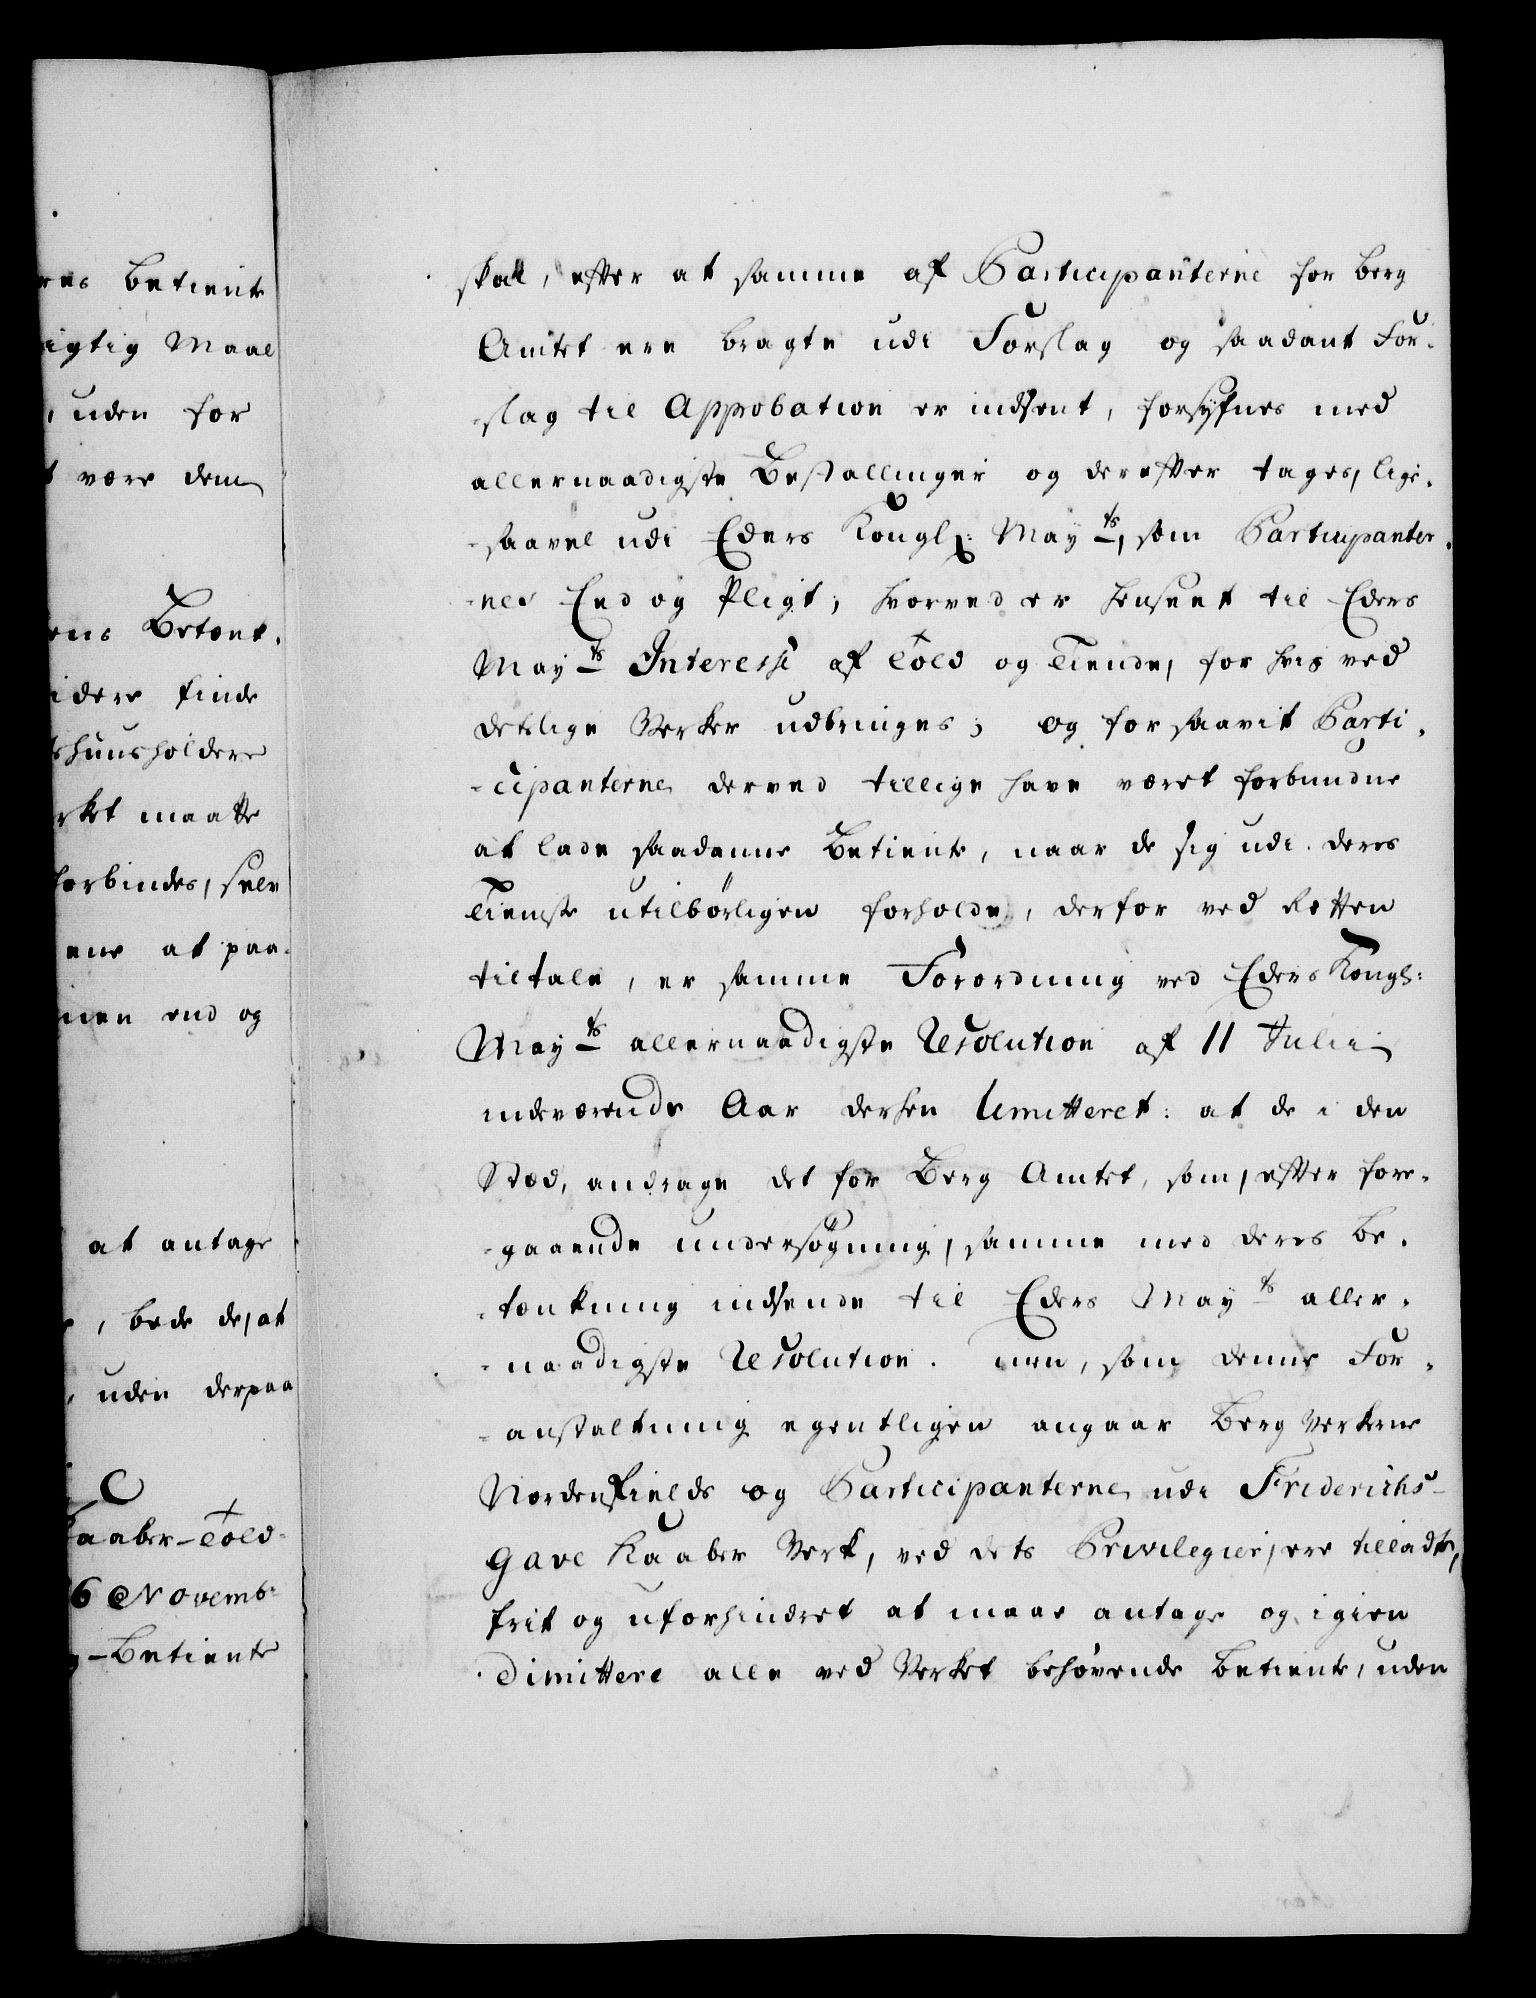 res Betiente
igtig Maal
, uden for
t være dem
ens Betænk.
idere finde
shuusholdere
rket maatte
forbindes, selv
ene at paa-
nen end og
at antage
, bede de, at
, uden derpaa
Kaaber-Told-
6 Novemb:
-Betiente
skal, efter at samme af Participanterne for Berg
Amtet ere bragte udi Forslag og saadant For-
-slag til Approbation er indsent, forsyfnes med
allernaadigste Bestallinger og derefter tages, lige-
-saavel udi Eders Kongl: May ts, som Participanter-
-nes Eed og Pligt; hvorved er henseet til Eders
May ts Interesse af Told og Tiende, for hvis ved
deslige Verker udbringes; og forsaavit Parti-
-cipanterne derved tillige have været forbundne
at lade saadanne Betiente, naar de sig udi deres
Tieneste utilbørligen forholde, derfor ved Retten
tiltale, er samme Forordning ved Eders Kongl:
May ts allernaadigste Resolution af 11 Julii
indeværende Aar derhen limitteret: at de i den
Sted, andrage det for Berg Amtet, som, efter fore-
-gaaende undersøgning, samme med deres be-
-tænkning indsende til Eders May ts aller-
-naadigste Resolution. men, som denne For-
-anstaltning egentligen angaar Berg Verkerne
Nordenfields og Participanterne udi Friderichs-
Gave Kaaber Verk, ved dets Privilegier, ere tilladte,
frit og uforhindret at maae antage og igien
dimittere alle ved Verket behøvende Betiente, uden